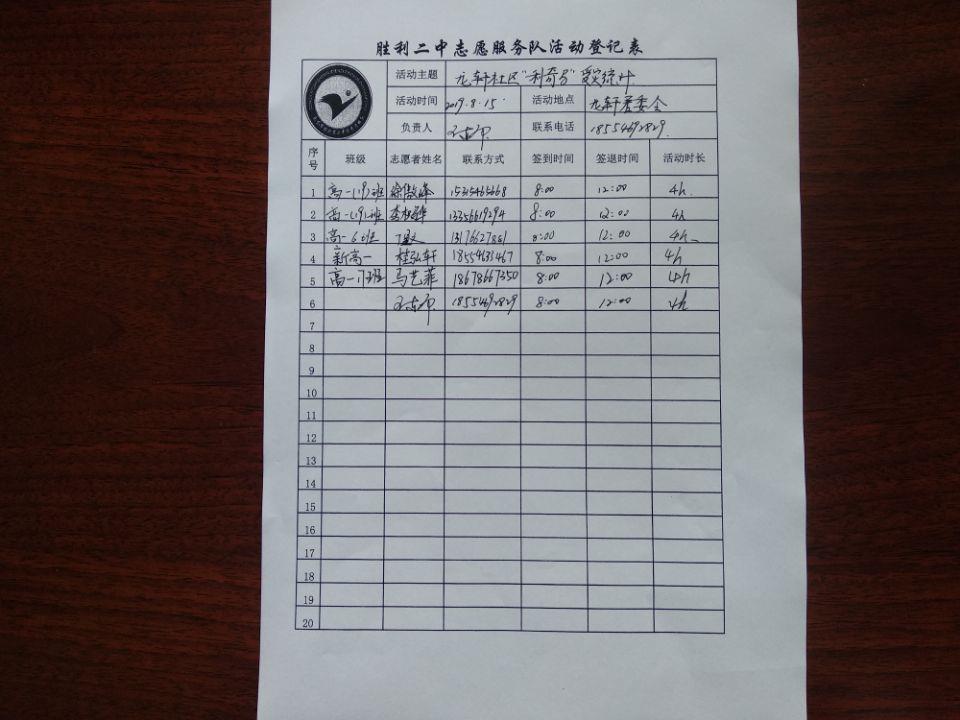 胜利二中志愿服务队活动登记表
活动主题 龙轩社区"利奇马"受灾统计
活动时间 2019.8.15 活动地点 龙轩居委会
负责人 联系电话 18554692829
序号 班级 志愿者姓名 联系方式 签到时间 签退时间 活动时长
1 高一19班 8:00 12:00 4h
2 高一19班 13356619294 8:00 12:00 4h
3 高一6班 8:00 12:00 4h
4 新高一 桂弘轩 8:00 12:00 4h
5 高一17班 马艺菲 18678667350 8:00 12:00 4h
6 18554692829 8:00 12:00 4h
7
8
9
10
11
12
13
14
15
16
17
18
19
20